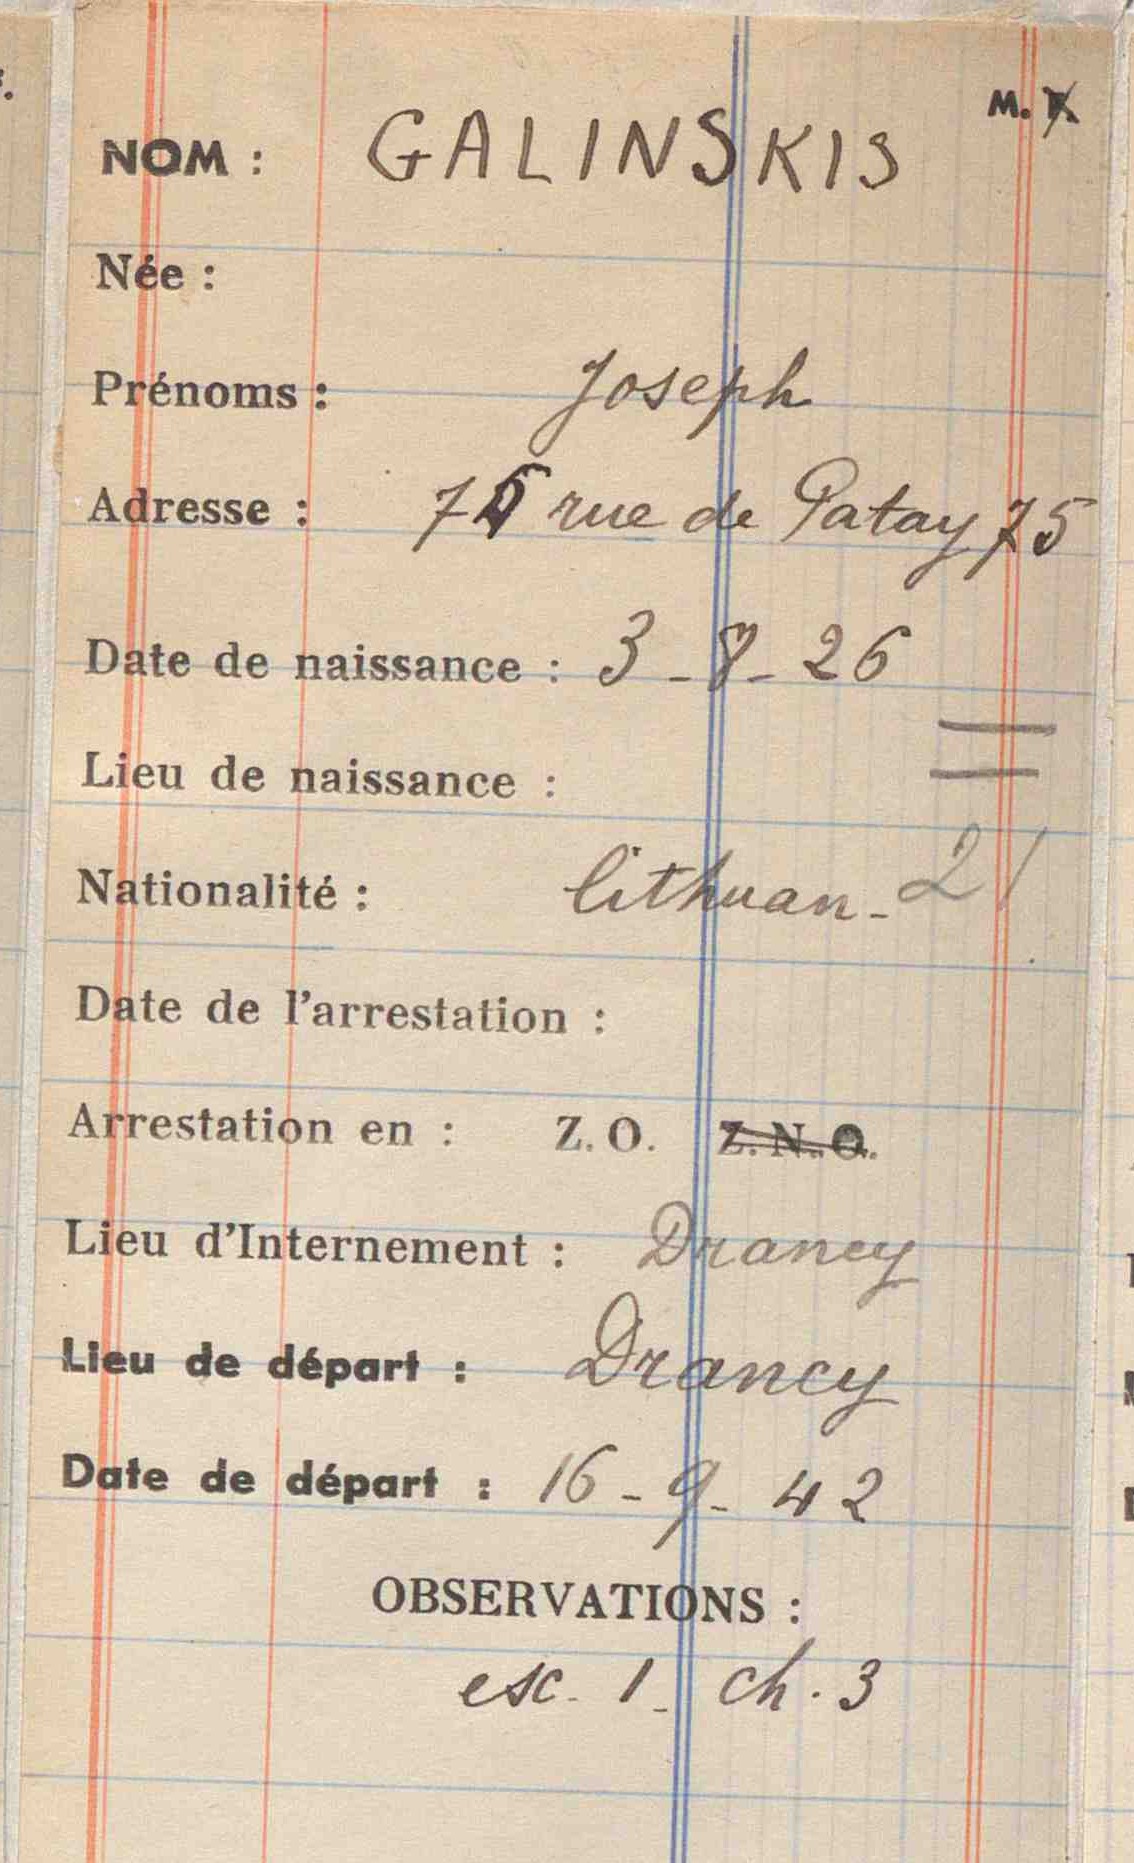 M. F.
NOM : GALINSKIS
Née :
Prénoms : Joseph
Adresse : 75 rue de Patay 75
Date de naissance : 3-8-26
Lieu de naissance :
Nationalité : lithuan- 21
Date de l'arrestation :
Arrestation en : Z.O. Z.N.O.
Lieu d'Internement : Drancy
Lieu de départ : Drancy
Date de départ : 16-9-42
OBSERVATIONS :
esc. 1_ ch. 3